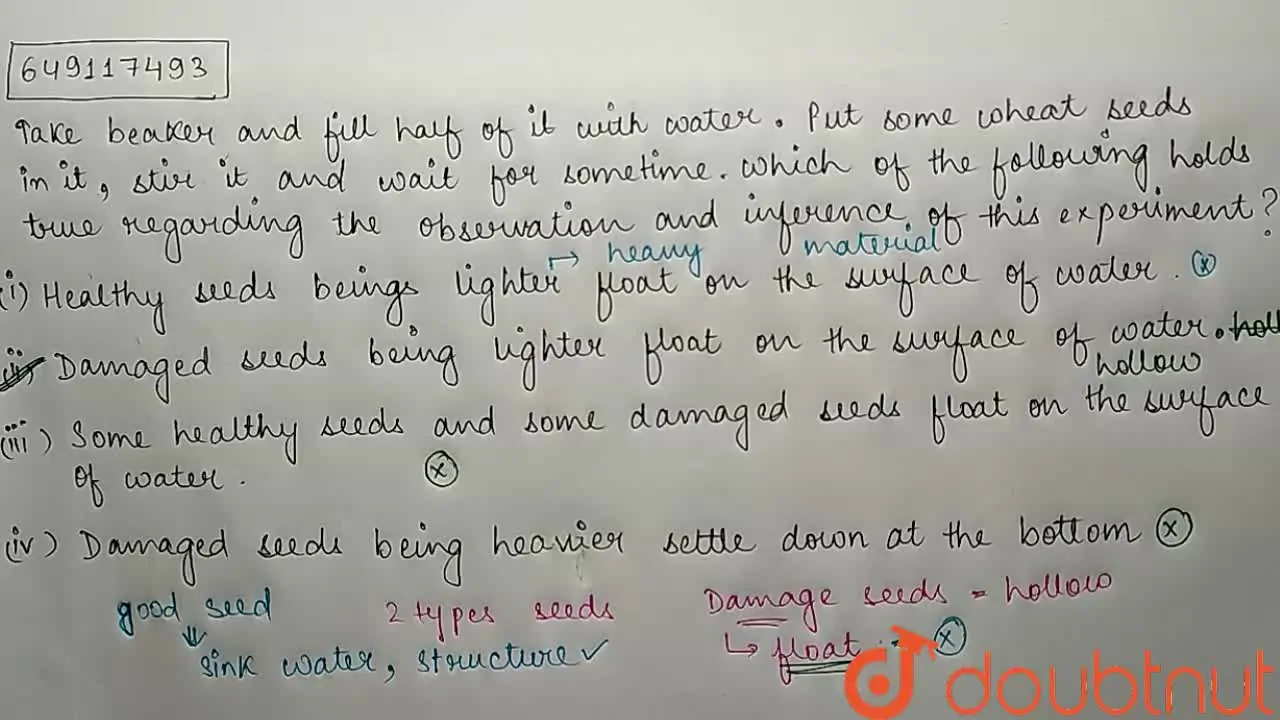 649117493
Take beaker and fill half of it with water. Put some wheat seeds
in it, stir it and wait for sometime. which of the following holds
true regarding the observation and inference of this experiment?
↦ heavy material
(i) Healthy seeds beings lighter float on the surface of water. ⓧ
(ii) Damaged seeds being lighter float on the surface of water. holl
hollow
(iii) Some healthy seeds and some damaged seeds float on the surface
of water. ⓧ
(iv) Damaged seeds being heavier settle down at the bottom ⓧ
good seed 2 types seeds Damage seeds = hollow
sink water, structure ✓ ↳ float ⓧ
doubtnut